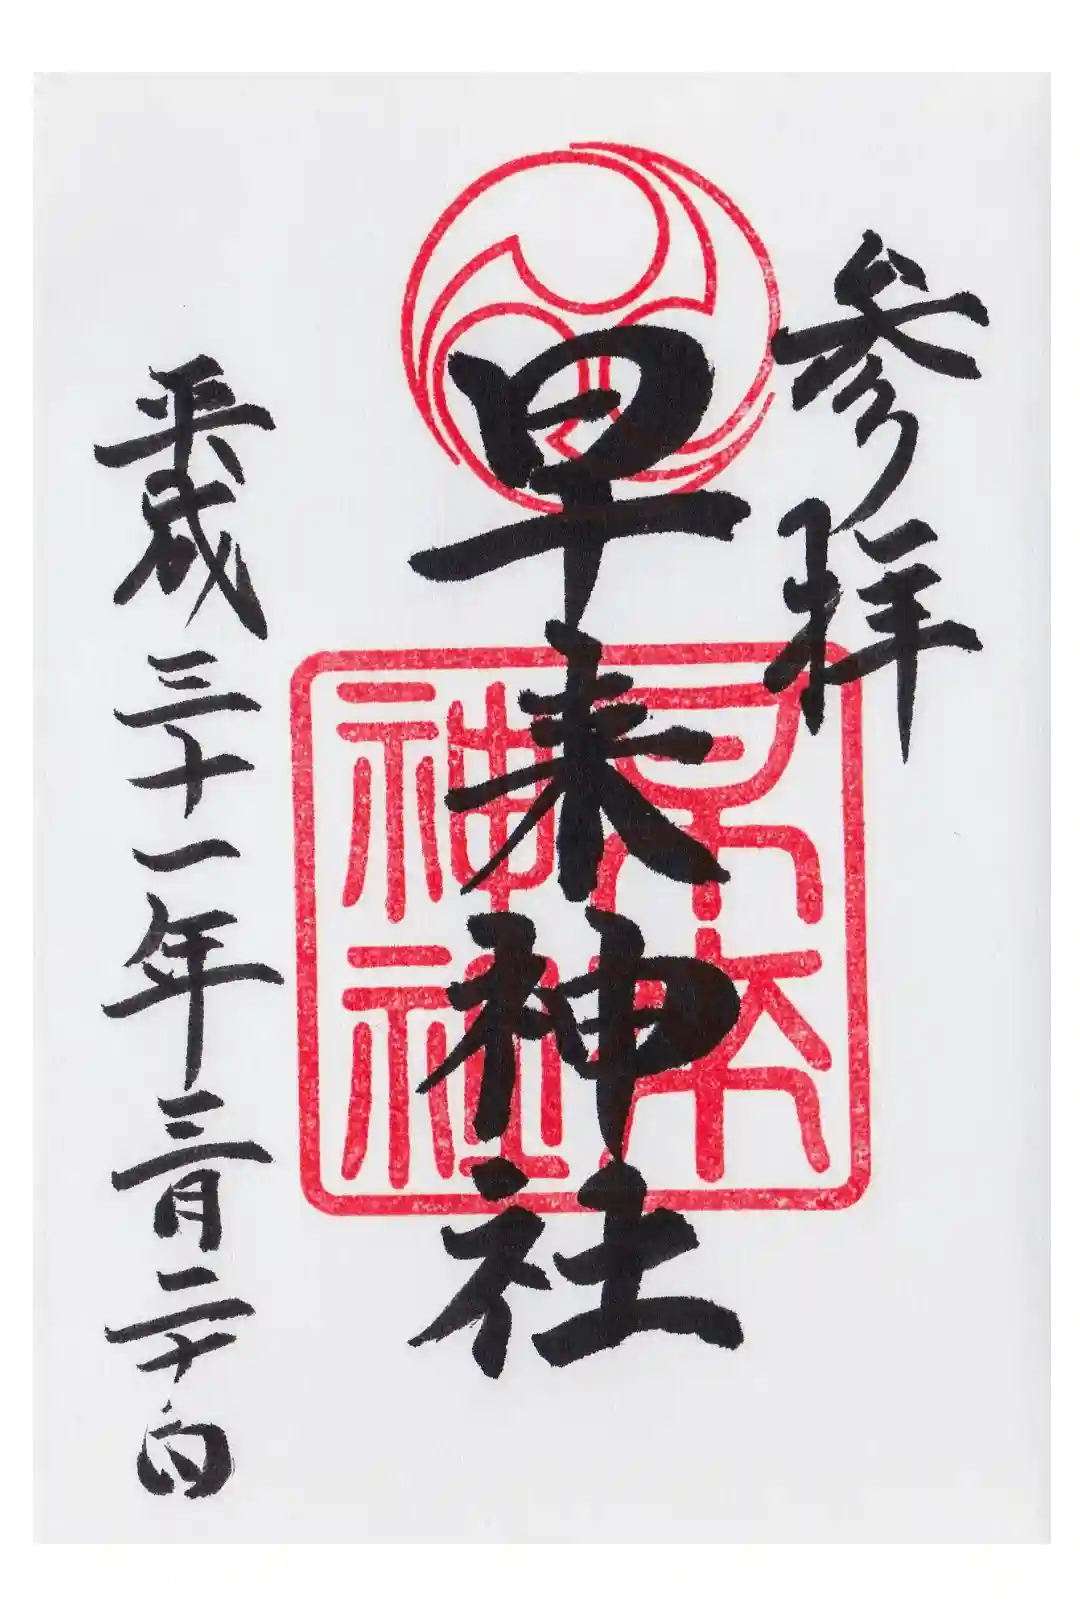 参拝
早来神社
早来
神社
平成三十一年三月二十日